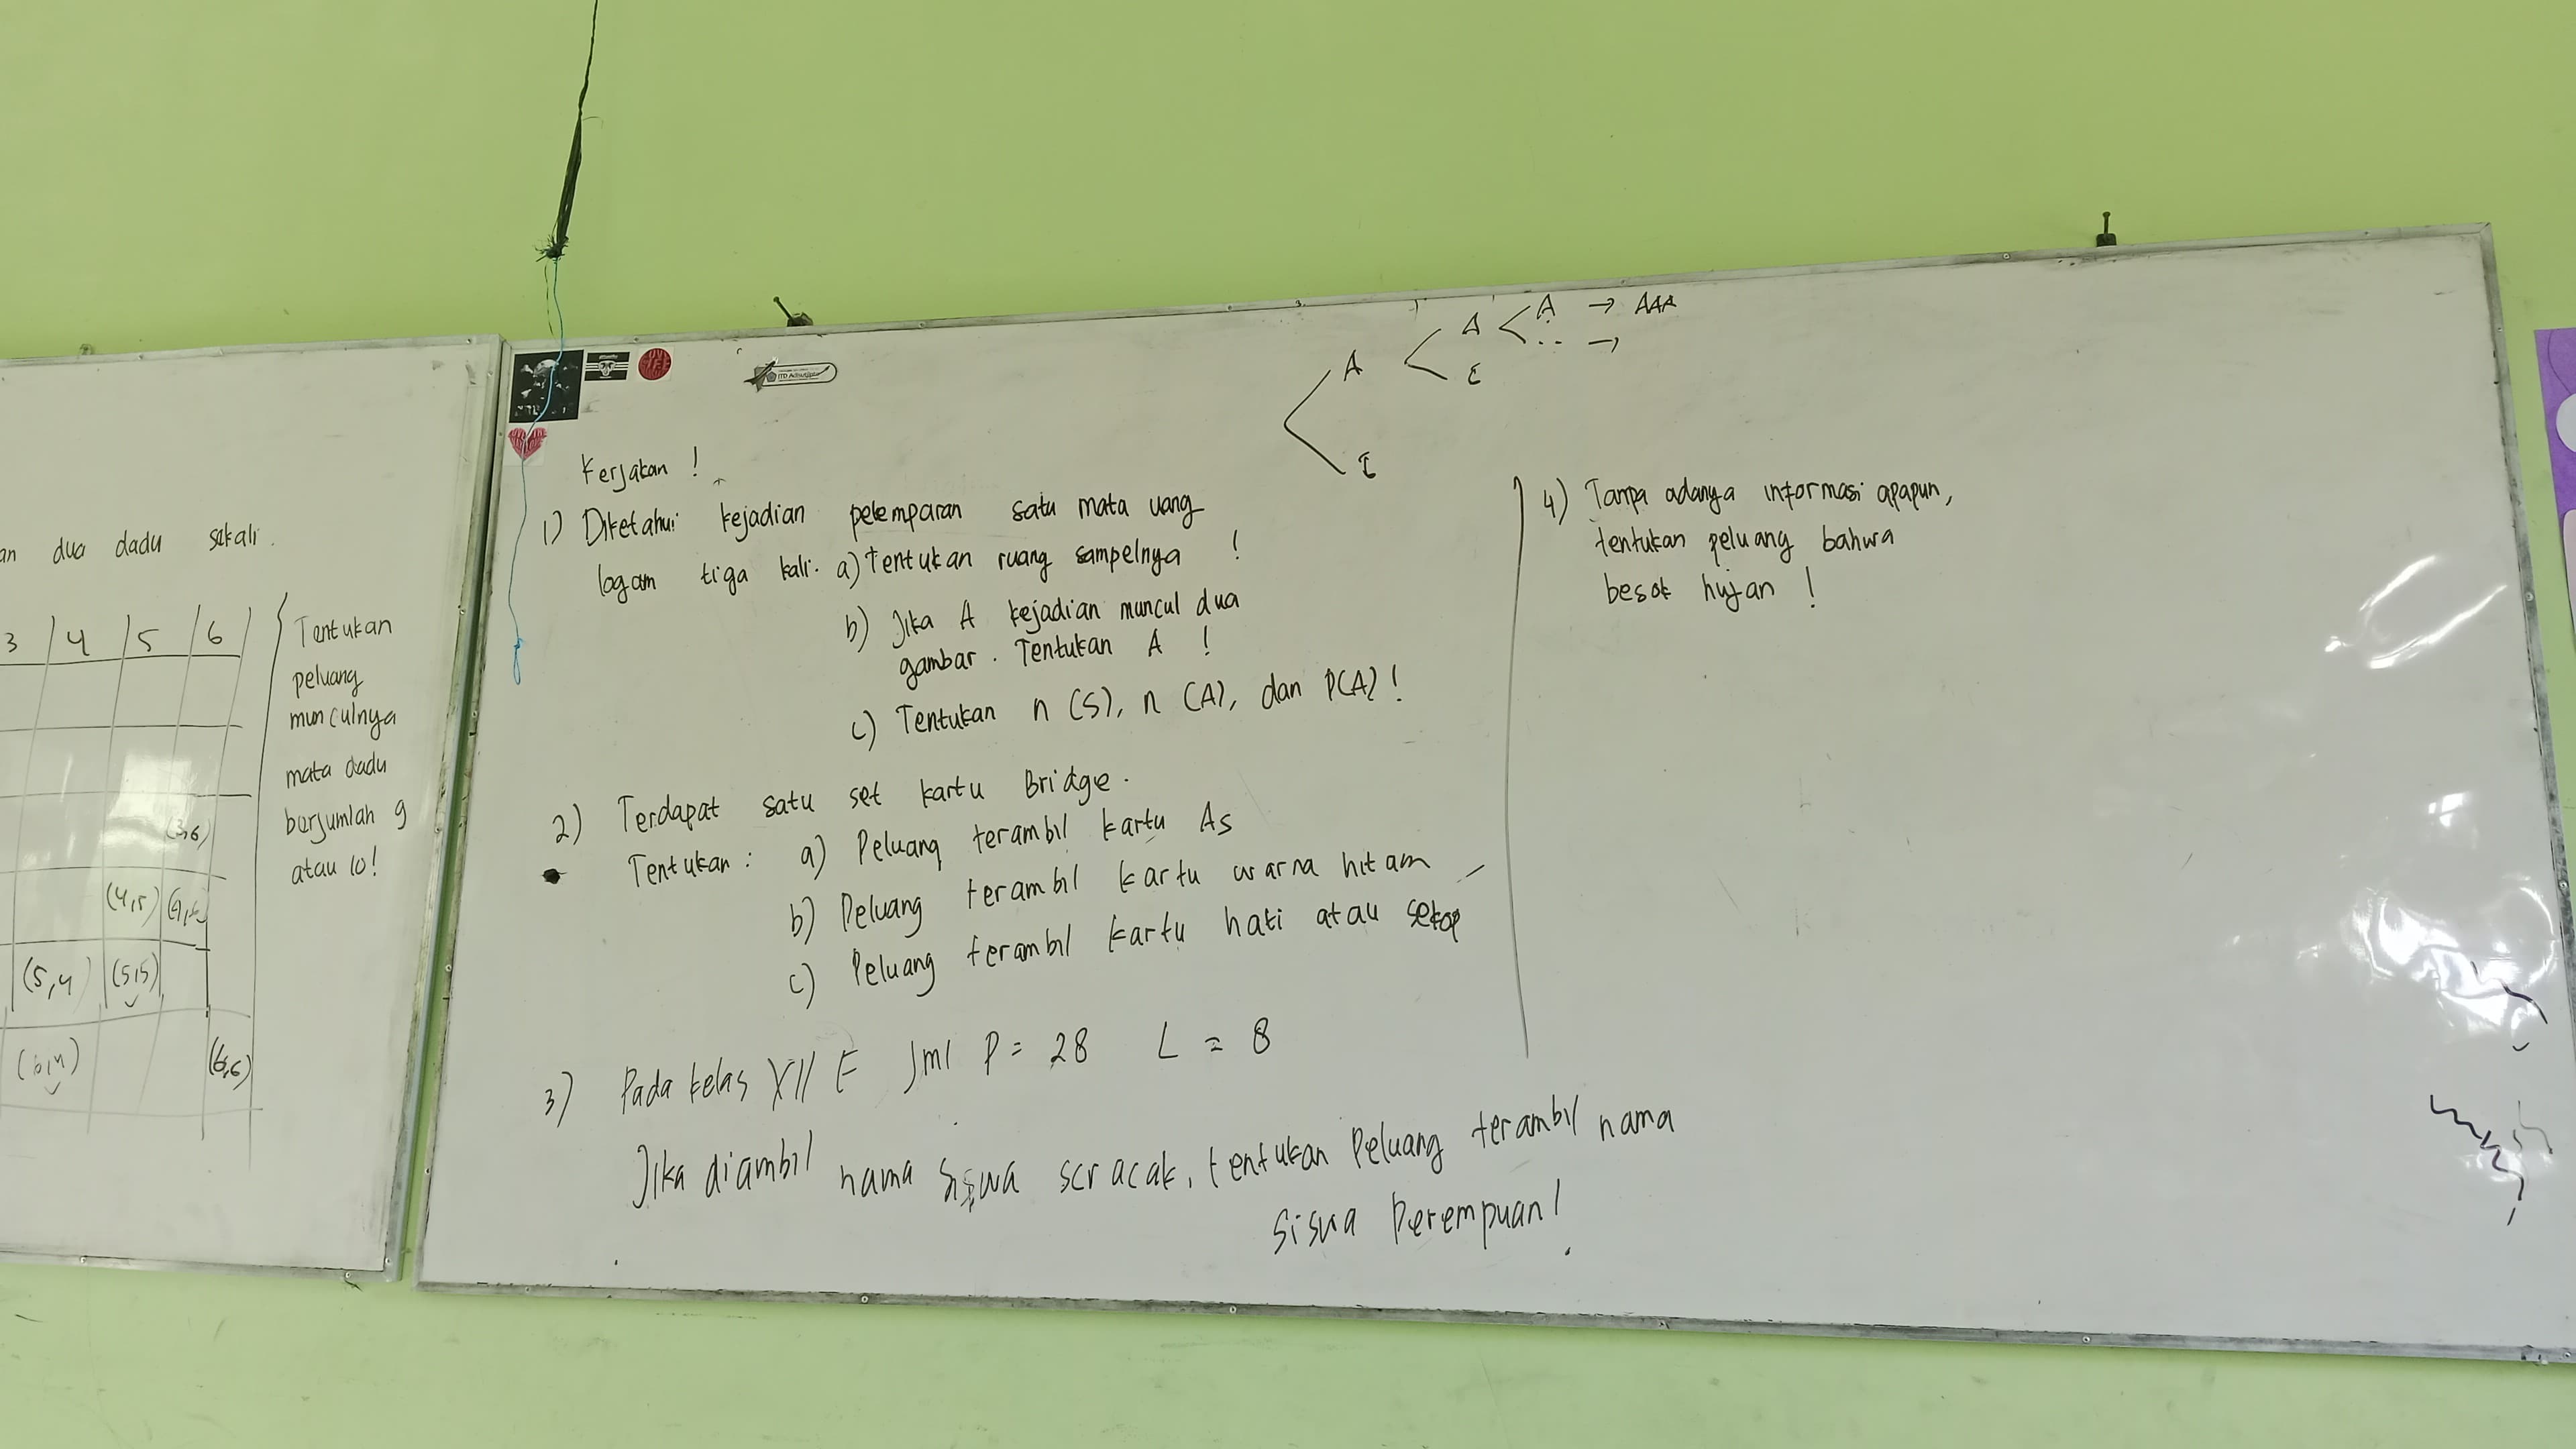 an dua dadu sekali.
3 4 5 6
(3,6)
(4,5)
(5,4) (5,5)
(6,4) (6,6)
Tentukan
peluang
munculnya
mata dadu
berjumlah 9
atau 10!
A A A → AAA
.. →
E
E
Kerjakan !
1) Diketahui kejadian pelemparan satu mata uang
logam tiga kali. a) Tentukan ruang sampelnya !
b) Jika A kejadian muncul dua
gambar. Tentukan A !
c) Tentukan n (S), n (A), dan P(A)!
2) Terdapat satu set kartu Bridge.
Tentukan : a) Peluang terambil kartu As
b) Peluang terambil kartu warna hitam
c) Peluang terambil kartu hati atau sekop
3) Pada kelas XII E Jml P = 28 L = 8
Jika diambil nama siswa scr acak, tentukan Peluang terambil nama
siswa Perempuan!
4) Tanpa adanya informasi apapun,
tentukan peluang bahwa
besok hujan !